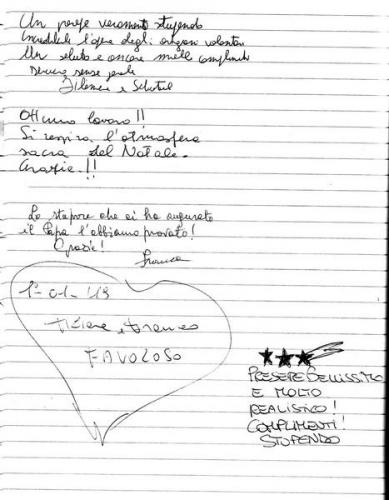 Un
veramente stupendo
Incredibile l'opera degli artigiani volontari
Un saluto e ancora mille complimenti
Davvero senza parole
Ottimo lavoro!!
Si respira l'atmosfera
sacra del Natale.
Grazie!!
Lo stupore che ci ha augurato
il Papa l'abbiamo provato!
Grazie!
Franca
1-01-'19
Tiziana e Franco
FAVOLOSO
PRESEPE BELLISSIMO
E MOLTO
REALISTICO!
COMPLIMENTI!
STUPENDO